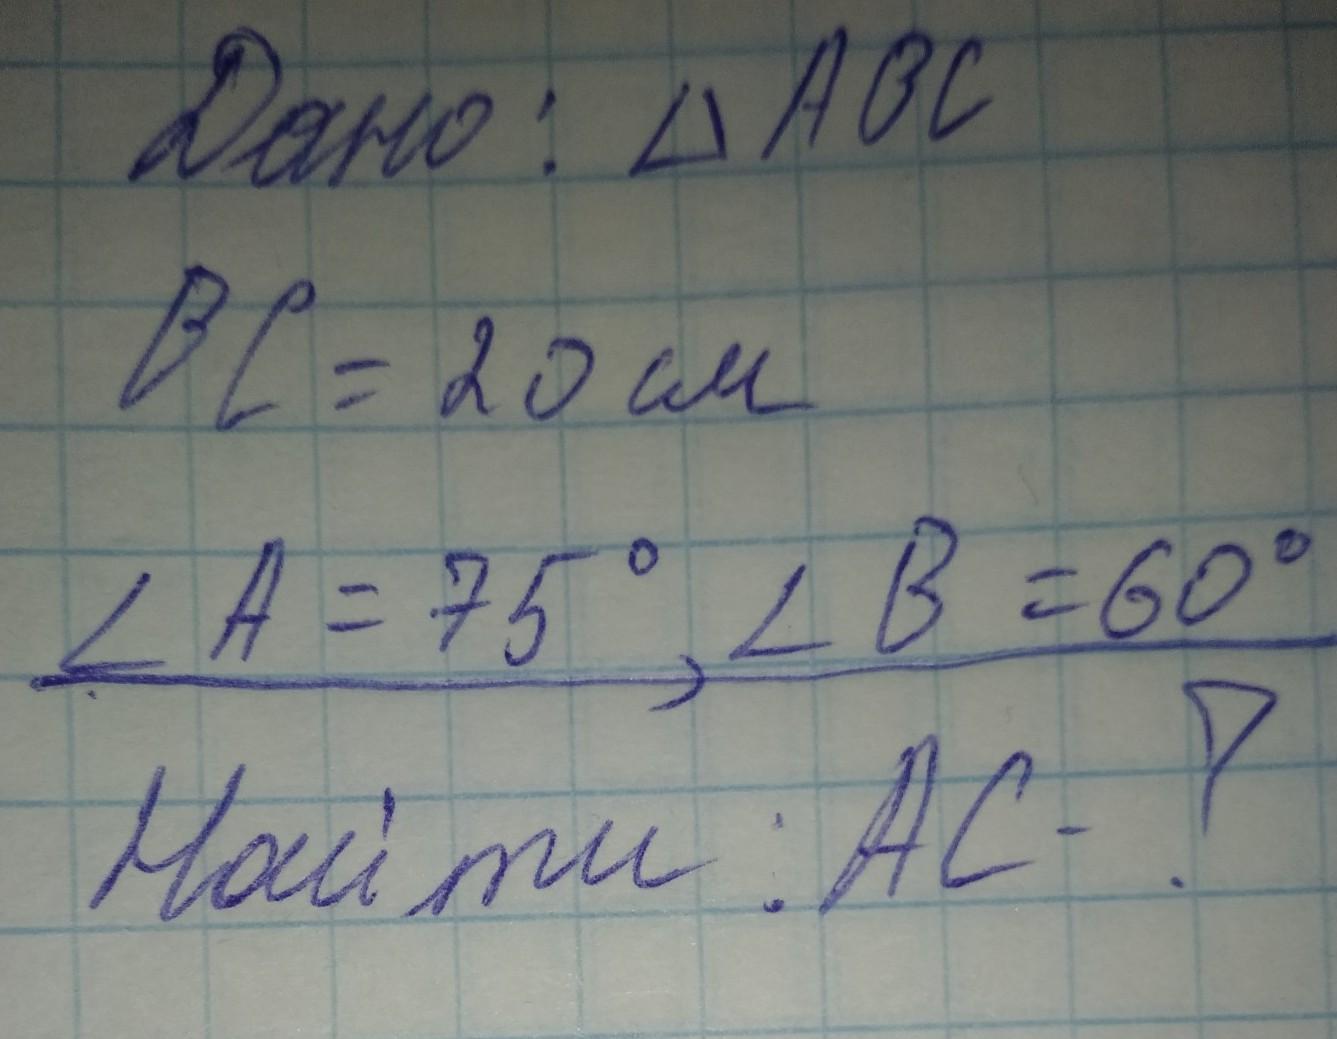 Дано: △ ABC
BC = 20 см
∠ A = 75°, ∠ B = 60°
Найти: AC - ?